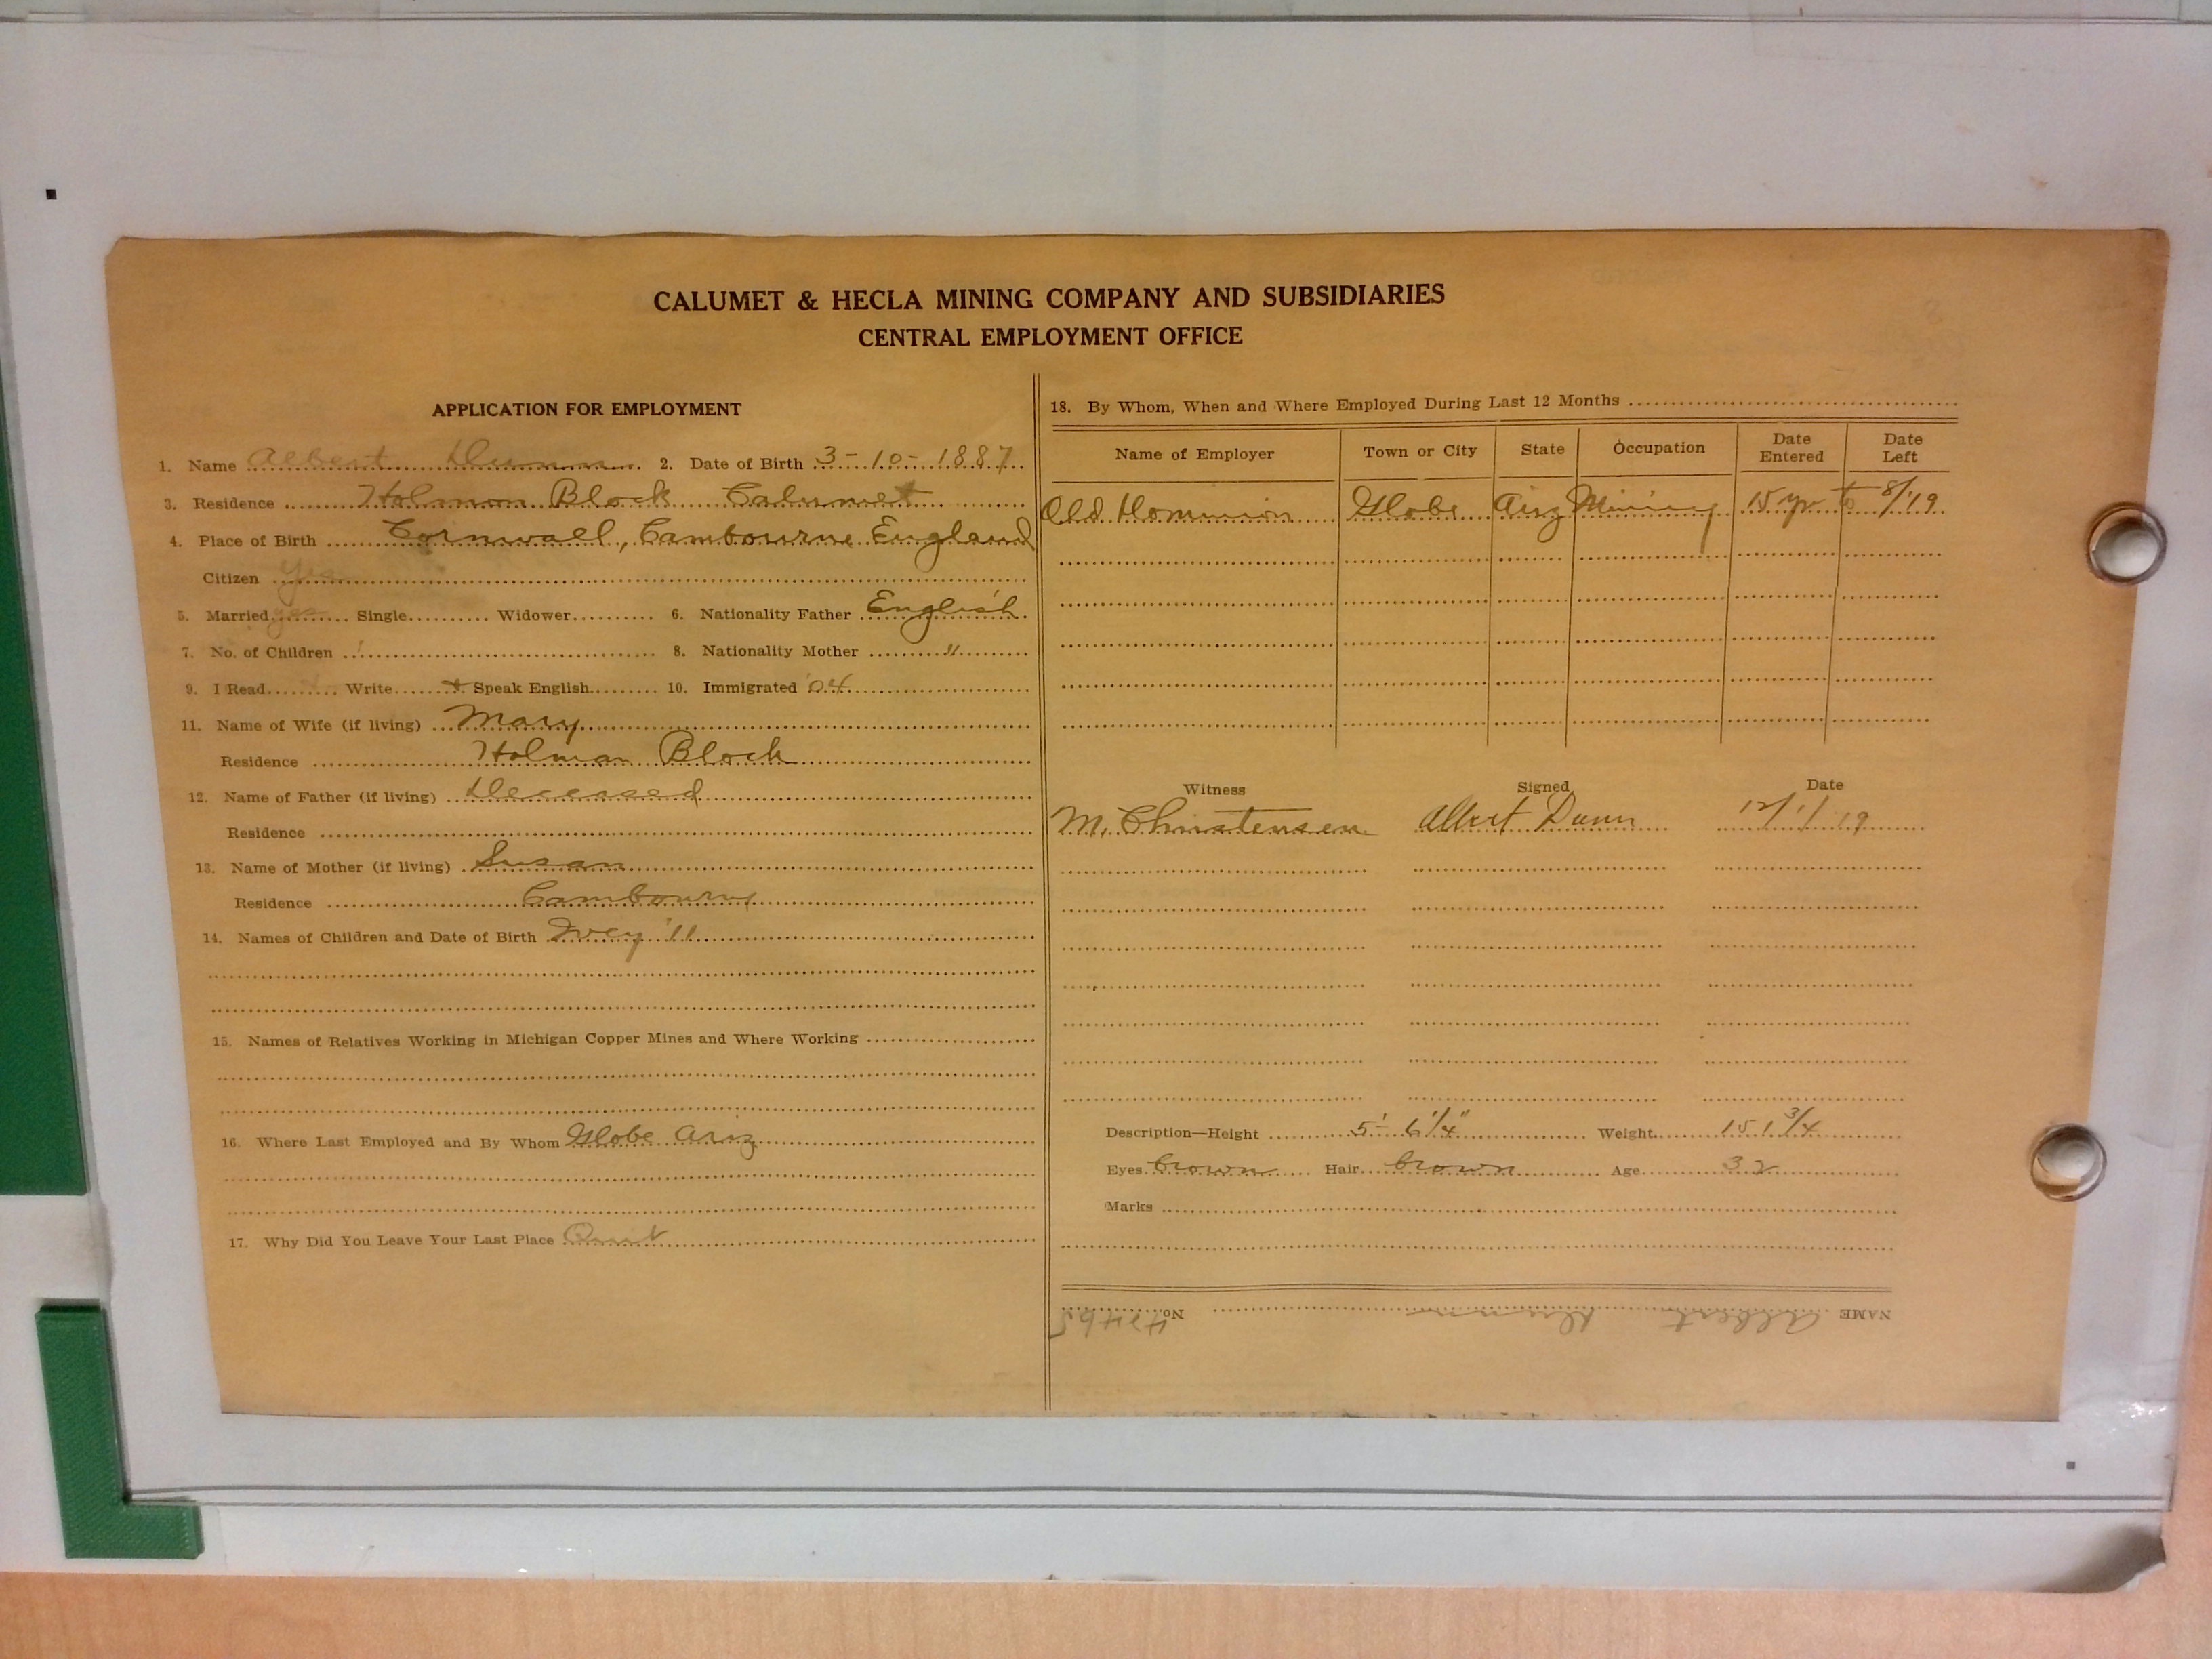 CALUMET & HECLA MINING COMPANY AND SUBSIDIARIES
CENTRAL EMPLOYMENT OFFICE
APPLICATION FOR EMPLOYMENT
1. Name Albert Dunn 2. Date of Birth 3-10-1887
3. Residence Holman Block Calumet
4. Place of Birth Cornwall, Cambourne England
Citizen yes
5. Married yes Single Widower 6. Nationality Father English
7. No. of Children 1 8. Nationality Mother "
9. I Read Write Speak English 10. Immigrated '04
11. Name of Wife (if living) Mary
Residence Holman Block
12. Name of Father (if living) Deceased
Residence
13. Name of Mother (if living) Susan
Residence Cambourne
14. Names of Children and Date of Birth Ivey '11
15. Names of Relatives Working in Michigan Copper Mines and Where Working
16. Where Last Employed and By Whom Globe Ariz
17. Why Did You Leave Your Last Place Quit
18. By Whom, When and Where Employed During Last 12 Months
Name of Employer Town or City State Occupation Date Entered Date Left
Old Dominion Globe Ariz Mining 15 yr to 8/'19
Witness Signed Date
M. Christensen Albert Dunn 12/1/19
Description—Height 5'-6 1/4" Weight 151 3/4
Eyes brown Hair brown Age 32
Marks
NAME Albert Dunn No.